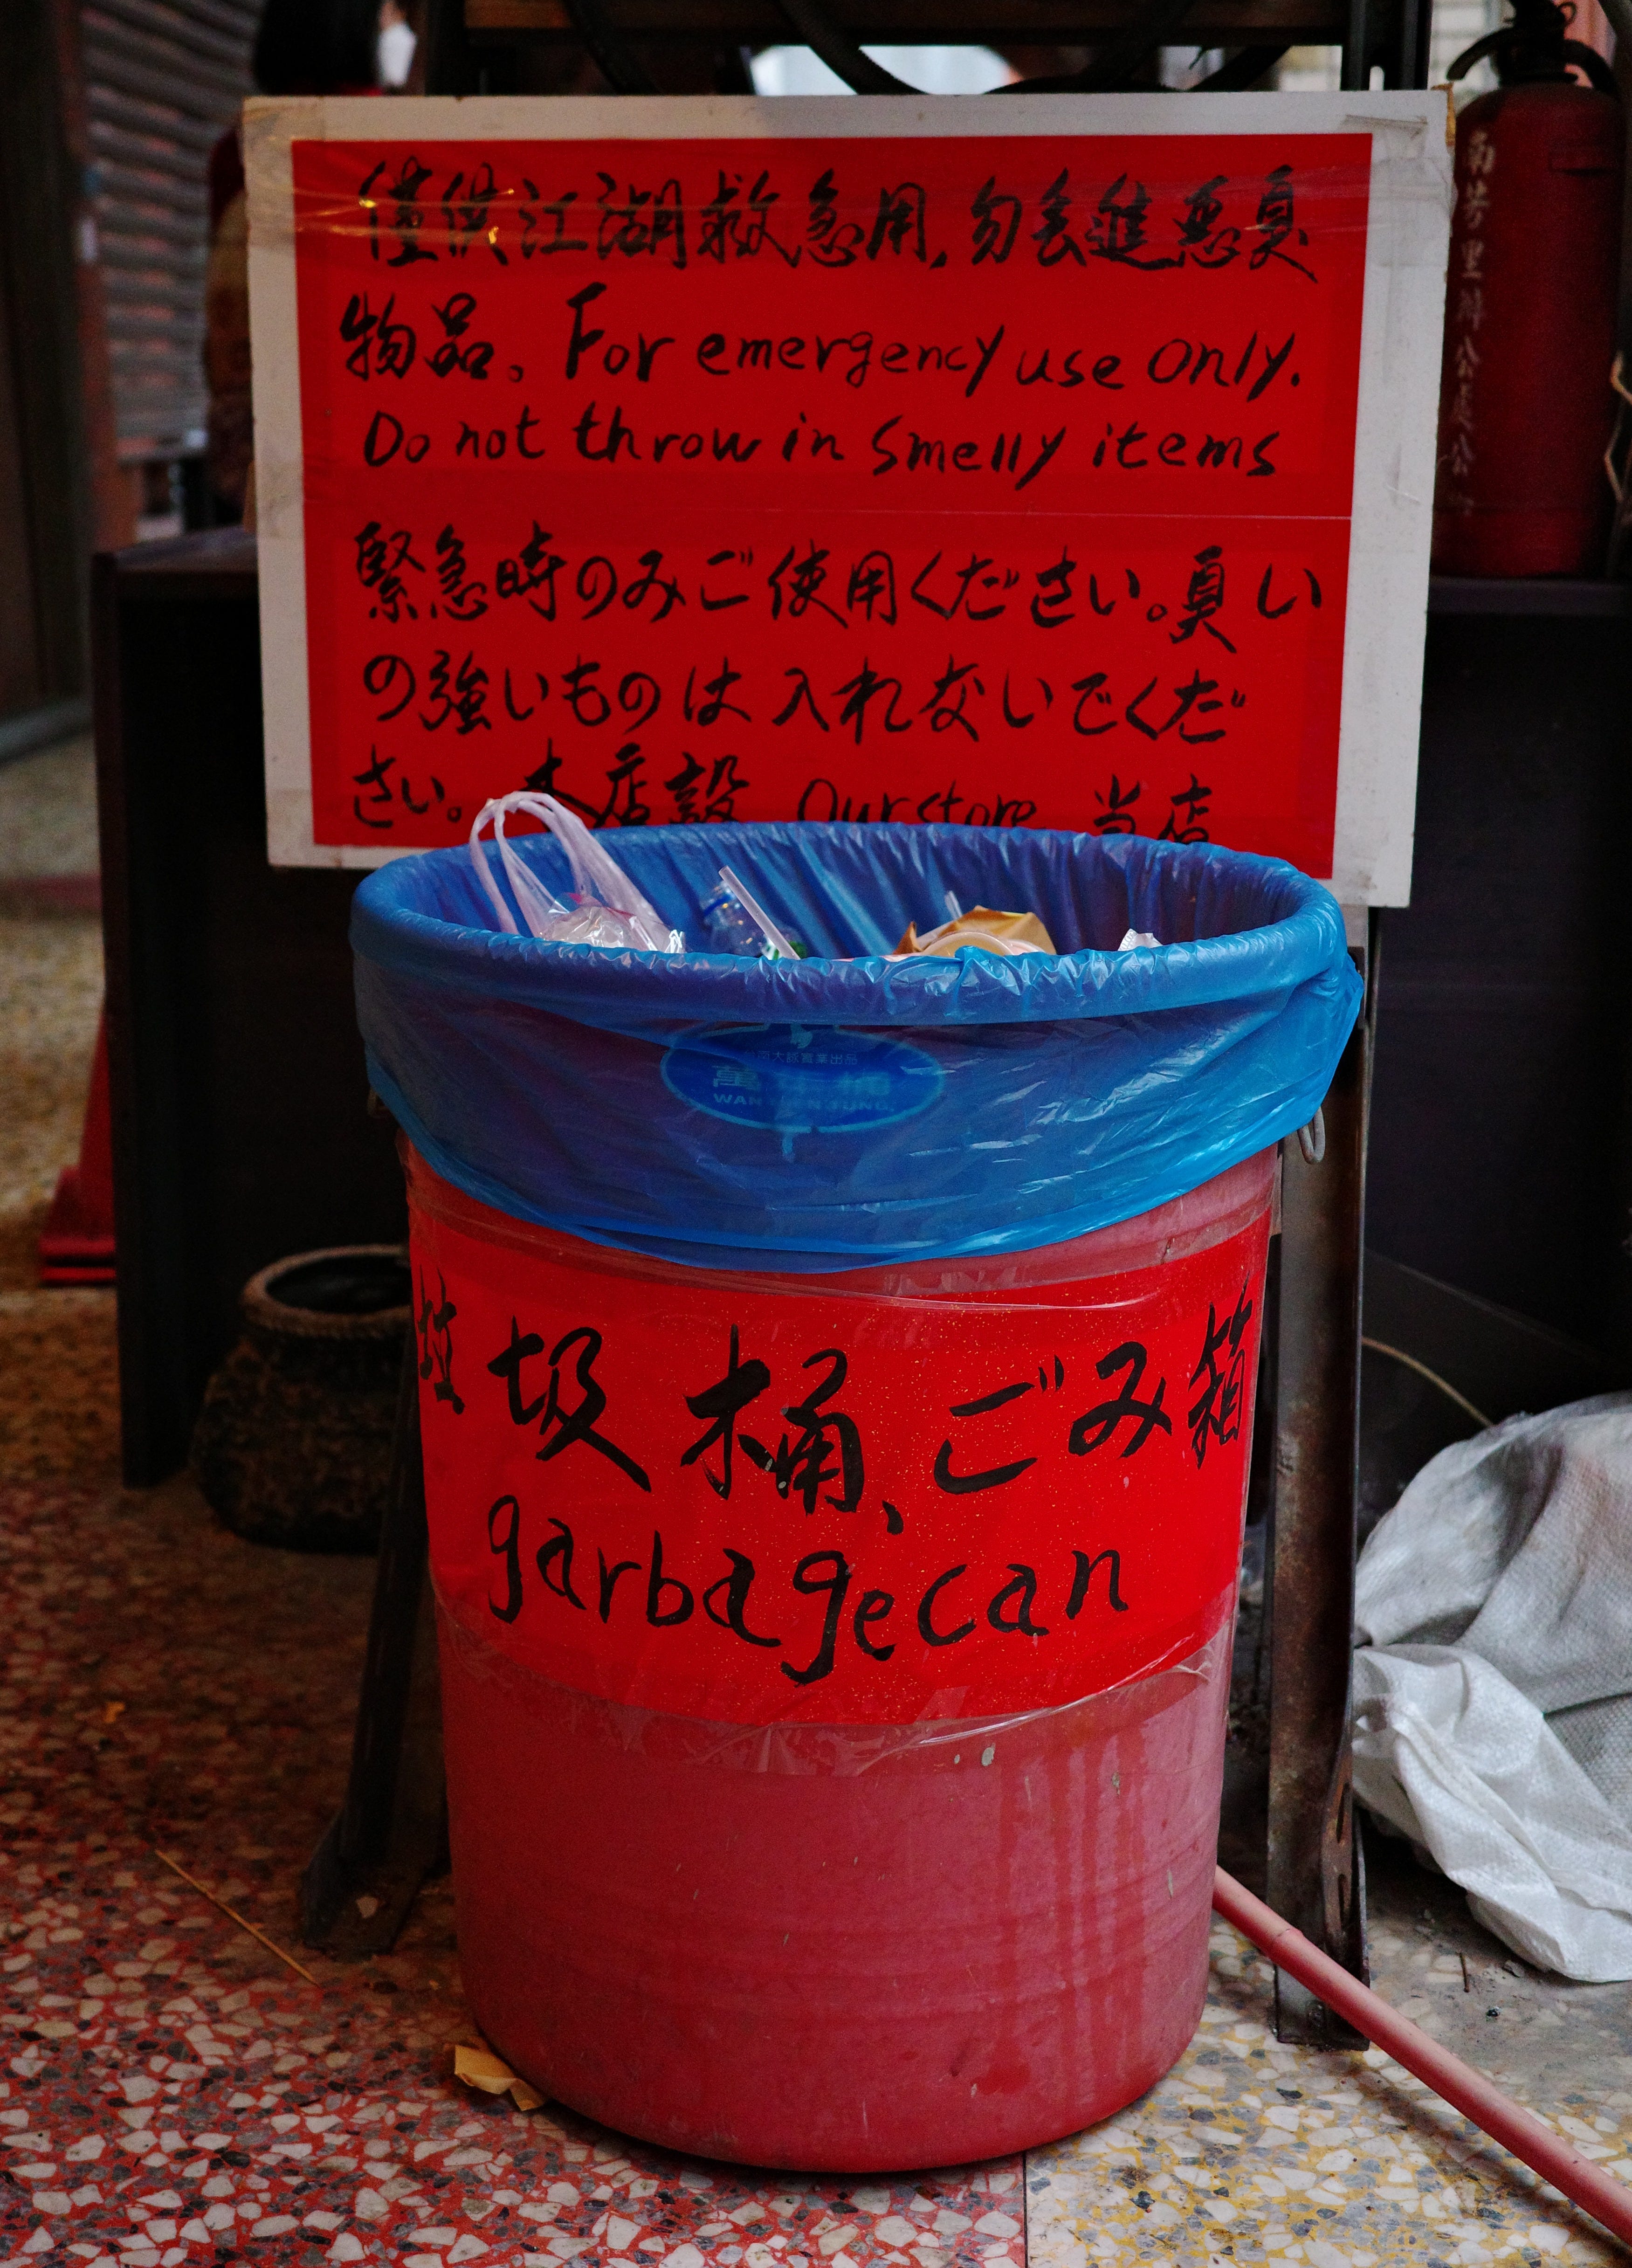 僅供江湖救急用,勿丟進惡臭
物品。For emergency use only.
Do not throw in smelly items
緊急時のみご使用ください。臭い
の強いものは入れないでくだ
さい。本店設 Our store 当店
垃圾桶、ごみ箱
garbage can